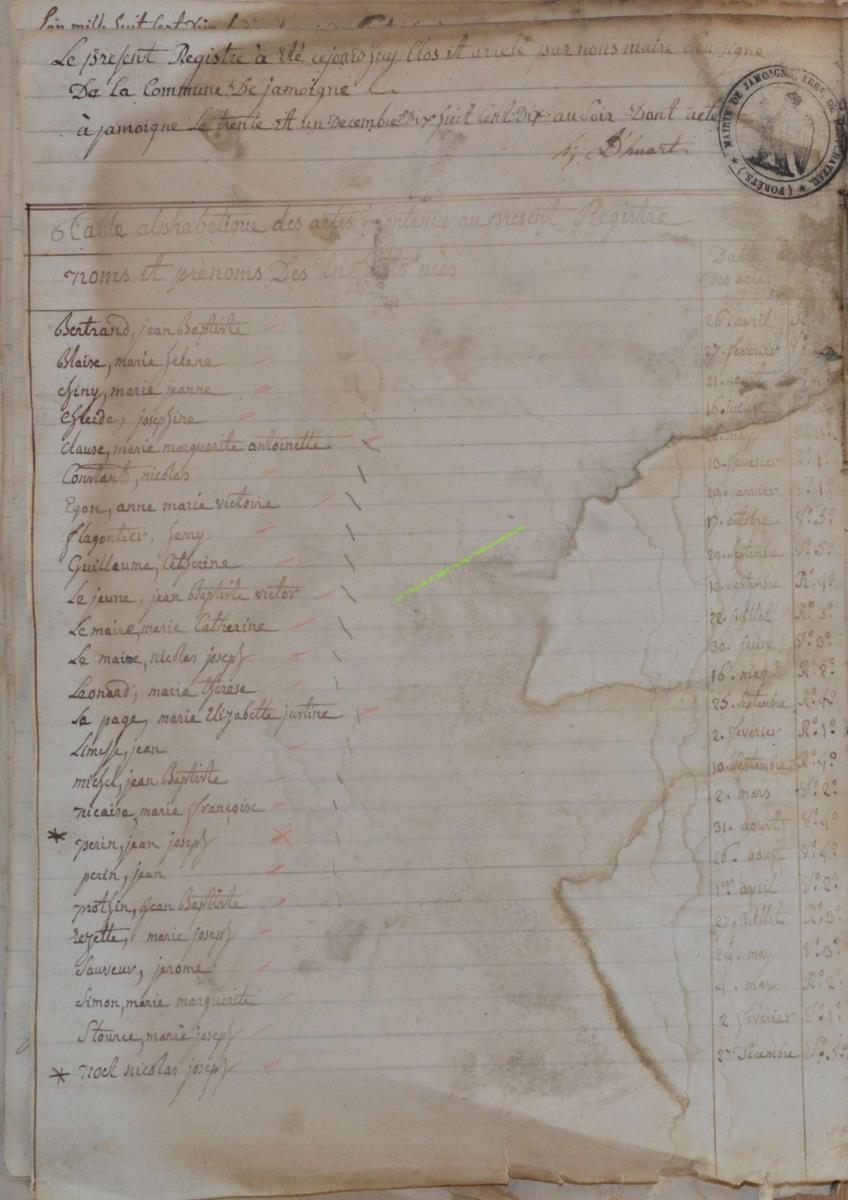 Le present Registre à été cejourd'huy Clos et arreté par nous maire
De la Commune De jamoigne
à jamoigne Le trente et un Decembre Dix huit Cent Dix au soir Dont acte
D'huart
MAIRIE DE JAMOIGNE (FORÊTS)
Table alphabetique des actes Contenus au present Registre
noms et prènoms Des Enfants nèès
Dattes
Des actes
Bertrand, jean Baptiste 26. avril
Blaise, marie helene 27. fevrier
Chiny, marie jeanne 21. aoust
Cheide, josephine 16. juillet
Clause, marie marguerite antoinette may
Constant, nicolas 13. fevrier R.º 1º
Egon, anne marie victoire 29. janvier V.º 1º
flagontier, henry 17. octobre V.º 5º
Guillaume, Catherine 29. septembre V.º 5º
Le jeune, jean Baptiste victor 10. septembre R.º 4º
Le maire, marie Catherine 22. juillet R.º 3º
Le maire, nicolas joseph 30. juin V.º 3º
Leonard, marie therese 16. may R.º 2º
Le page, marie Elizabette justine 25. septembre R.º 4º
Limesse, jean 2. fevrier R.º 1º
michel, jean Baptiste 10. septembre R.º 4º
nicaise, marie françoise 2. mars V.º 2º
* perin, jean joseph 31. aoust V.º 4º
perin, jean 26. aoust V.º 4º
prothin, jean Baptiste 1er avril V.º 2º
rezette, marie joseph 27. juillet R.º 3º
Sauveur, jerome 24. may V.º 3º
Simon, marie marguerite 4. may R.º 2º
Stource, marie joseph 2 fevrier V.º 1º
* nock nicolas joseph 27 Decembre V.º 5º